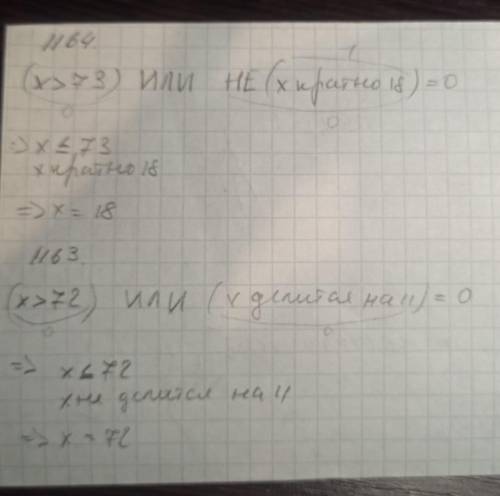 1164.
1
(x>73) ИЛИ НЕ (x кратно 18) = 0
0 0
=> x ≤ 73
x кратно 18
=> x = 18
1163.
(x>72) ИЛИ (x делится на 11) = 0
0 0
=> x ≤ 72
x не делится на 11
=> x = 72